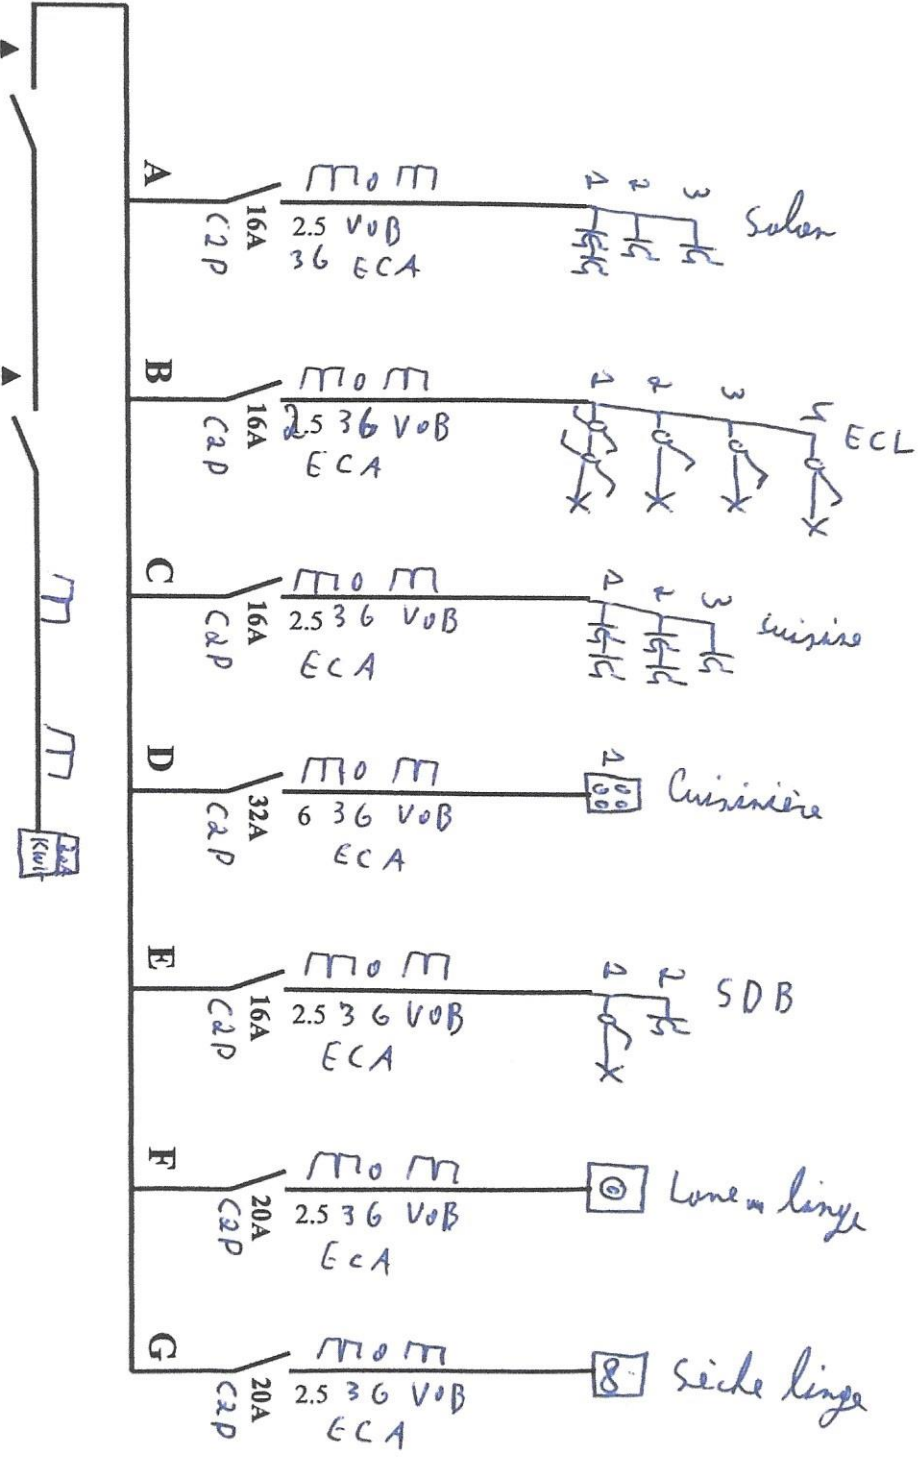 A
16A
C2P
2.5 VOB
3G ECA
1 2 3
Salon
B
16A
C2P
2.5 3G VOB
ECA
1 2 3 4
ECL
C
16A
C2P
2.5 3G VOB
ECA
1 2 3
cuisine
D
32A
C2P
6 3G VOB
ECA
1
Cuisinière
E
16A
C2P
2.5 3G VOB
ECA
1 2
SDB
F
20A
C2P
2.5 3G VOB
ECA
linge
G
20A
C2P
2.5 3G VOB
ECA
Sèche linge